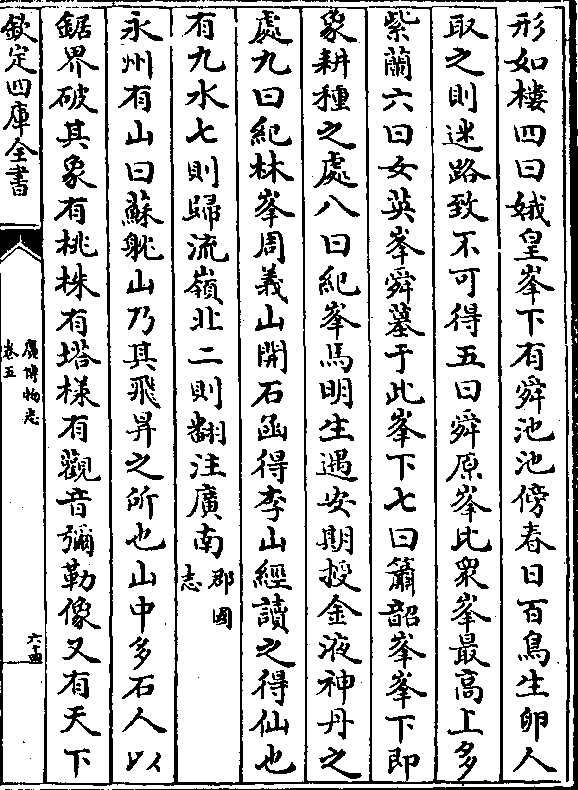 形如樓四曰娥皇峯下有舜池池傍春日百鳥生卵人
取之則迷路致不可得五曰舜原峯比衆峯最高上多
紫蘭六曰女英峯舜墓于此峯下七曰簫韶峯峯下即
象耕種之處八曰紀峯馬明生遇安期授金液神丹之
處九曰紀林峯周義山開石函得李山經讀之得仙也
有九水七則歸流嶺北二則翻注廣南郡國志
永州有山曰蘇躭山乃其飛昇之所也山中多石人以
鋸界破其象有桃株有塔樣有觀音彌勒像又有天下
欽定四庫全書
廣博物志
卷五
六十四